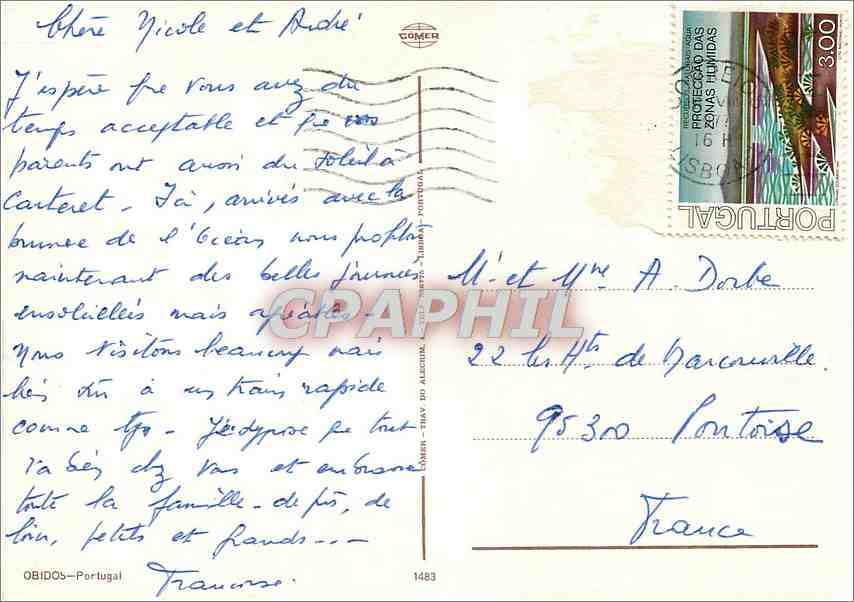 Chère Nicole et André
J'espère que vous avez du
temps acceptable et que vos
parents ont aussi du soleil à
Carteret - Ici, arrivés avec la
brume de l'Océan nous profitons
maintenant des belles journées
ensoleillées mais agréables -
Nous visitons beaucoup mais
bien sûr à un train rapide
comme tjs - Je suppose que tout
va bien chez vous et embrasse
toute la famille - de près, de
loin, petits et grands ---
Françoise.
OBIDOS—Portugal
1483
COMER
COMER - TRAV. DO ALECRIM, - LISBOA - PORTUGAL
PORTUGAL
3.00
PROTECÇÃO DAS
ZONAS HUMIDAS
16 H
LISBOA
Mr et Mme A. Dorbe
22 les Hts de Marcouville.
95300 Pontoise
France
CPAPHIL